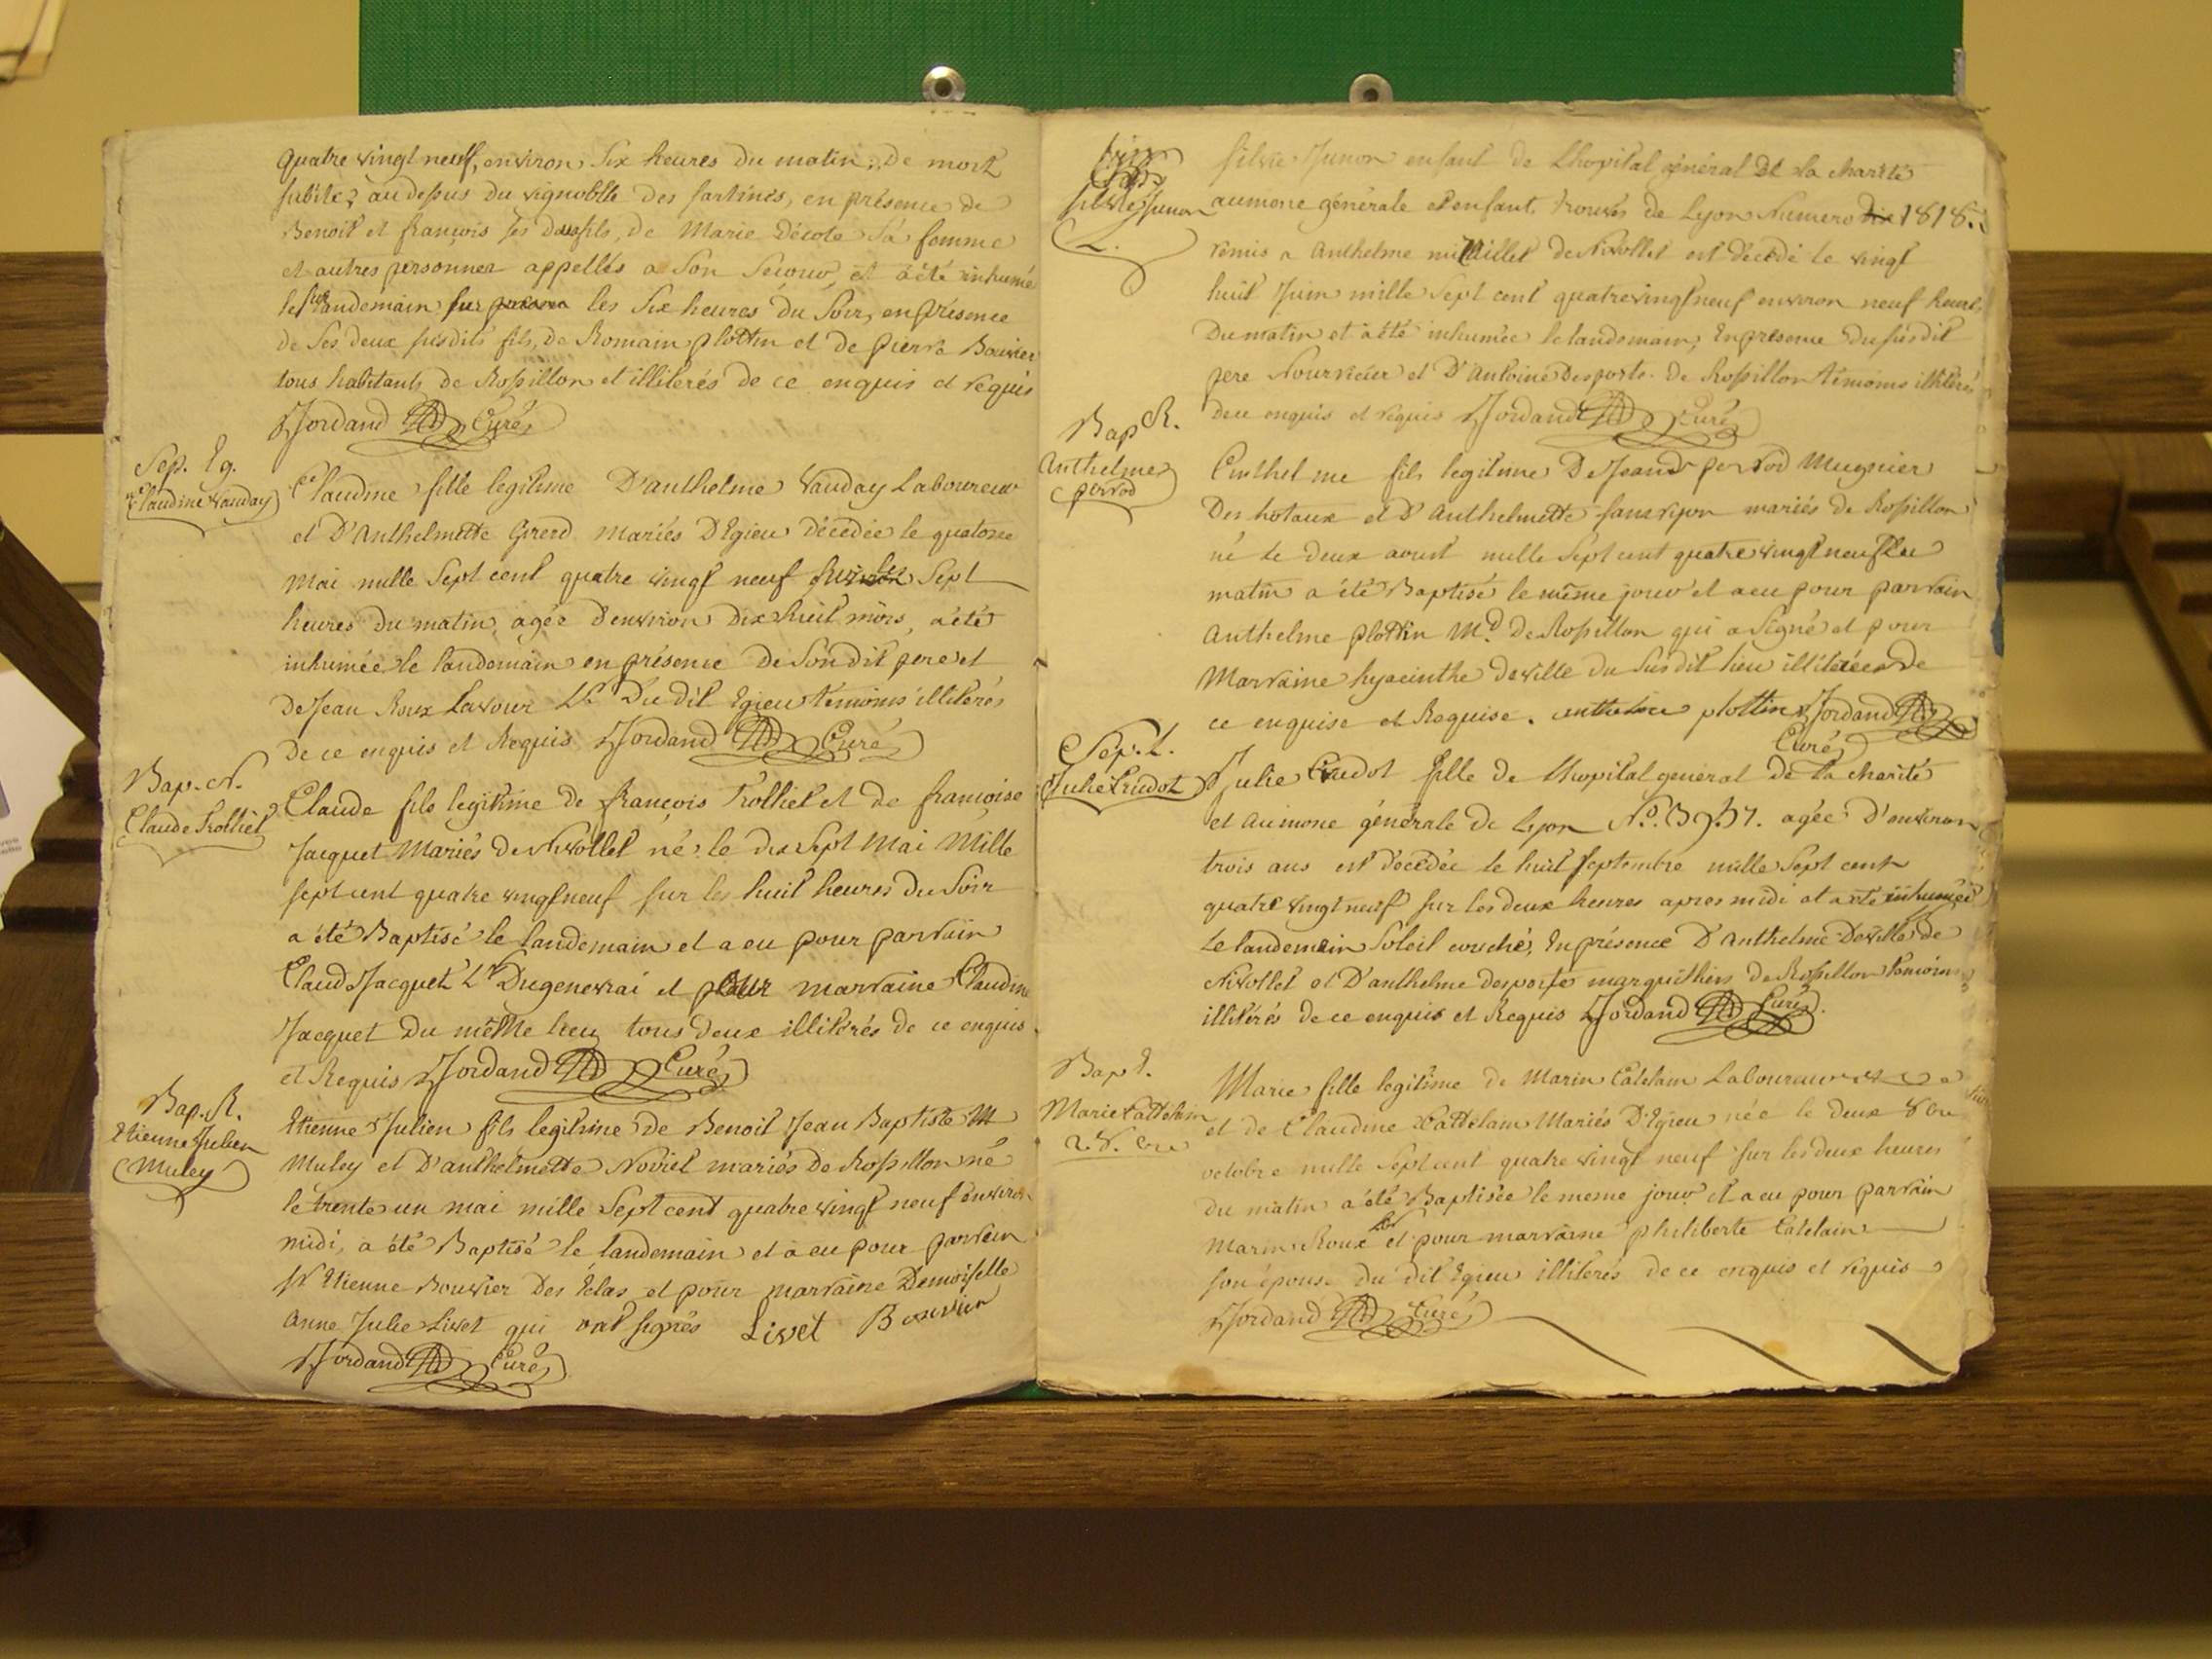 quatre vingt neuf, environ six heures du matin, de mort
subite, au dessus du vignoble des sartines, en présence de
Benoit et françois ses deux fils, de Marie Décote sa femme
et autres personnes appellés a son secour, et a été inhumé
le surlandemain les six heures du soir, en présence
de ses deux susdits fils, de Romain plottin et de pierre Bouvier
tous habitants de Rossillon et illiterés de ce enquis et requis
Jordand Curé
Sep. Eg.
Claudine Vauday
Claudine fille legitime D'anthelme Vauday Laboureur
et D'Anthelmette Girerd mariés D'Egieu décédée le quatorze
mai mille sept cent quatre vingt neuf sur les sept
heures du matin, agée d'environ dix huit mois, a été
inhumée le landemain en présence de son dit pere et
de Jean Roux Lavour Lr. du dit Egieu témoins illiterés
de ce enquis et Requis Jordand Curé
Bap. N.
Claude Trolliet
Claude fils legitime de françois Trolliet et de françoise
Jacquet Mariés de Nivollet né le dix sept Mai Mille
sept cent quatre vingt neuf sur les huit heures du soir
a été Baptisé le landemain et a eu pour parrain
Claud Jacquet Lr Dugenevrai et pour marraine Claudine
Jacquet du même lieu tous deux illiterés de ce enquis
et Requis Jordand Curé
Bap. R.
Etienne Julien
Muley
Etienne Julien fils legitime de Benoit Jean Baptiste
Muley et D'anthelmette Noviet mariés de Rossillon né
le trente un mai mille sept cent quatre vingt neuf environ
midi, a été Baptisé le landemain et a eu pour parrain
sr Etienne Bouvier Des Elas et pour marraine Demoiselle
Anne Julie Livet qui ont signés Livet Bouvier
Jordand Curé
silvie Junon
L.
silvie Junon enfant de Lhopital général de la charité
aumone générale et enfants trouvés de Lyon Numero 1818.
remis a Anthelme millillet de Nivollet est décédé le vingt
huit Juin mille sept cent quatre vingt neuf environ neuf heures
du matin et a été inhumée le landemain, en présence du susdit
pere Nourricier et D'Antoine Desporte de Rossillon témoins illiterés
de ce enquis et requis Jordand Curé
Bap R.
Anthelme
perrod
Anthelme fils legitime De Jean perrod Mugnier
Des hotaux et D'Anthelmette mariés de Rossillon
né le deux aoust mille sept cent quatre vingt neuf le
matin a été Baptisé le même jour et a eu pour parrain
Anthelme plottin Md. de Rossillon qui a signé et pour
Marraine hyacinthe deville du susdit lieu illiterée de
ce enquise et Requise. anthelme plottin Jordand
Curé
Sep. L.
Julie Credot
Julie Credot fille de Lhopital general de la charité
et Aumone générale de Lyon agée d'environ
trois ans est décédée le huit septembre mille sept cent
quatre vingt neuf sur les deux heures apres midi et a été inhumée
Le landemain soleil couché, En présence D'Anthelme Deville de
Nivollet et D'anthelme desporte marguillier de Rossillon témoins
illiterés de ce enquis et Requis Jordand Curé
Bap E.
Marie Cattelain
Marie fille legitime de Marin Catelain Laboureur
et de Claudine Cattelain Mariés D'Egieu née le deux 8bre
octobre mille sept cent quatre vingt neuf sur les deux heures
du matin a été Baptisée le meme jour et a eu pour parrain
Marin Roux Lr et pour marraine philiberte Catelain
son épouse du dit Egieu illiterés de ce enquis et requis
Jordand Curé